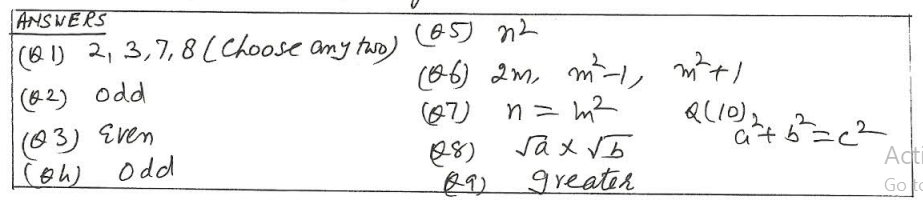 ANSWERS
(Q1) 2, 3, 7, 8 (Choose any two)
(Q2) odd
(Q3) Even
(Q4) Odd
(Q5) n²
(Q6) 2m, m²-1, m²+1
(Q7) n = m²
Q8) √a × √b
Q9) greater
Q(10) a²+b²=c²
Acti
Go to